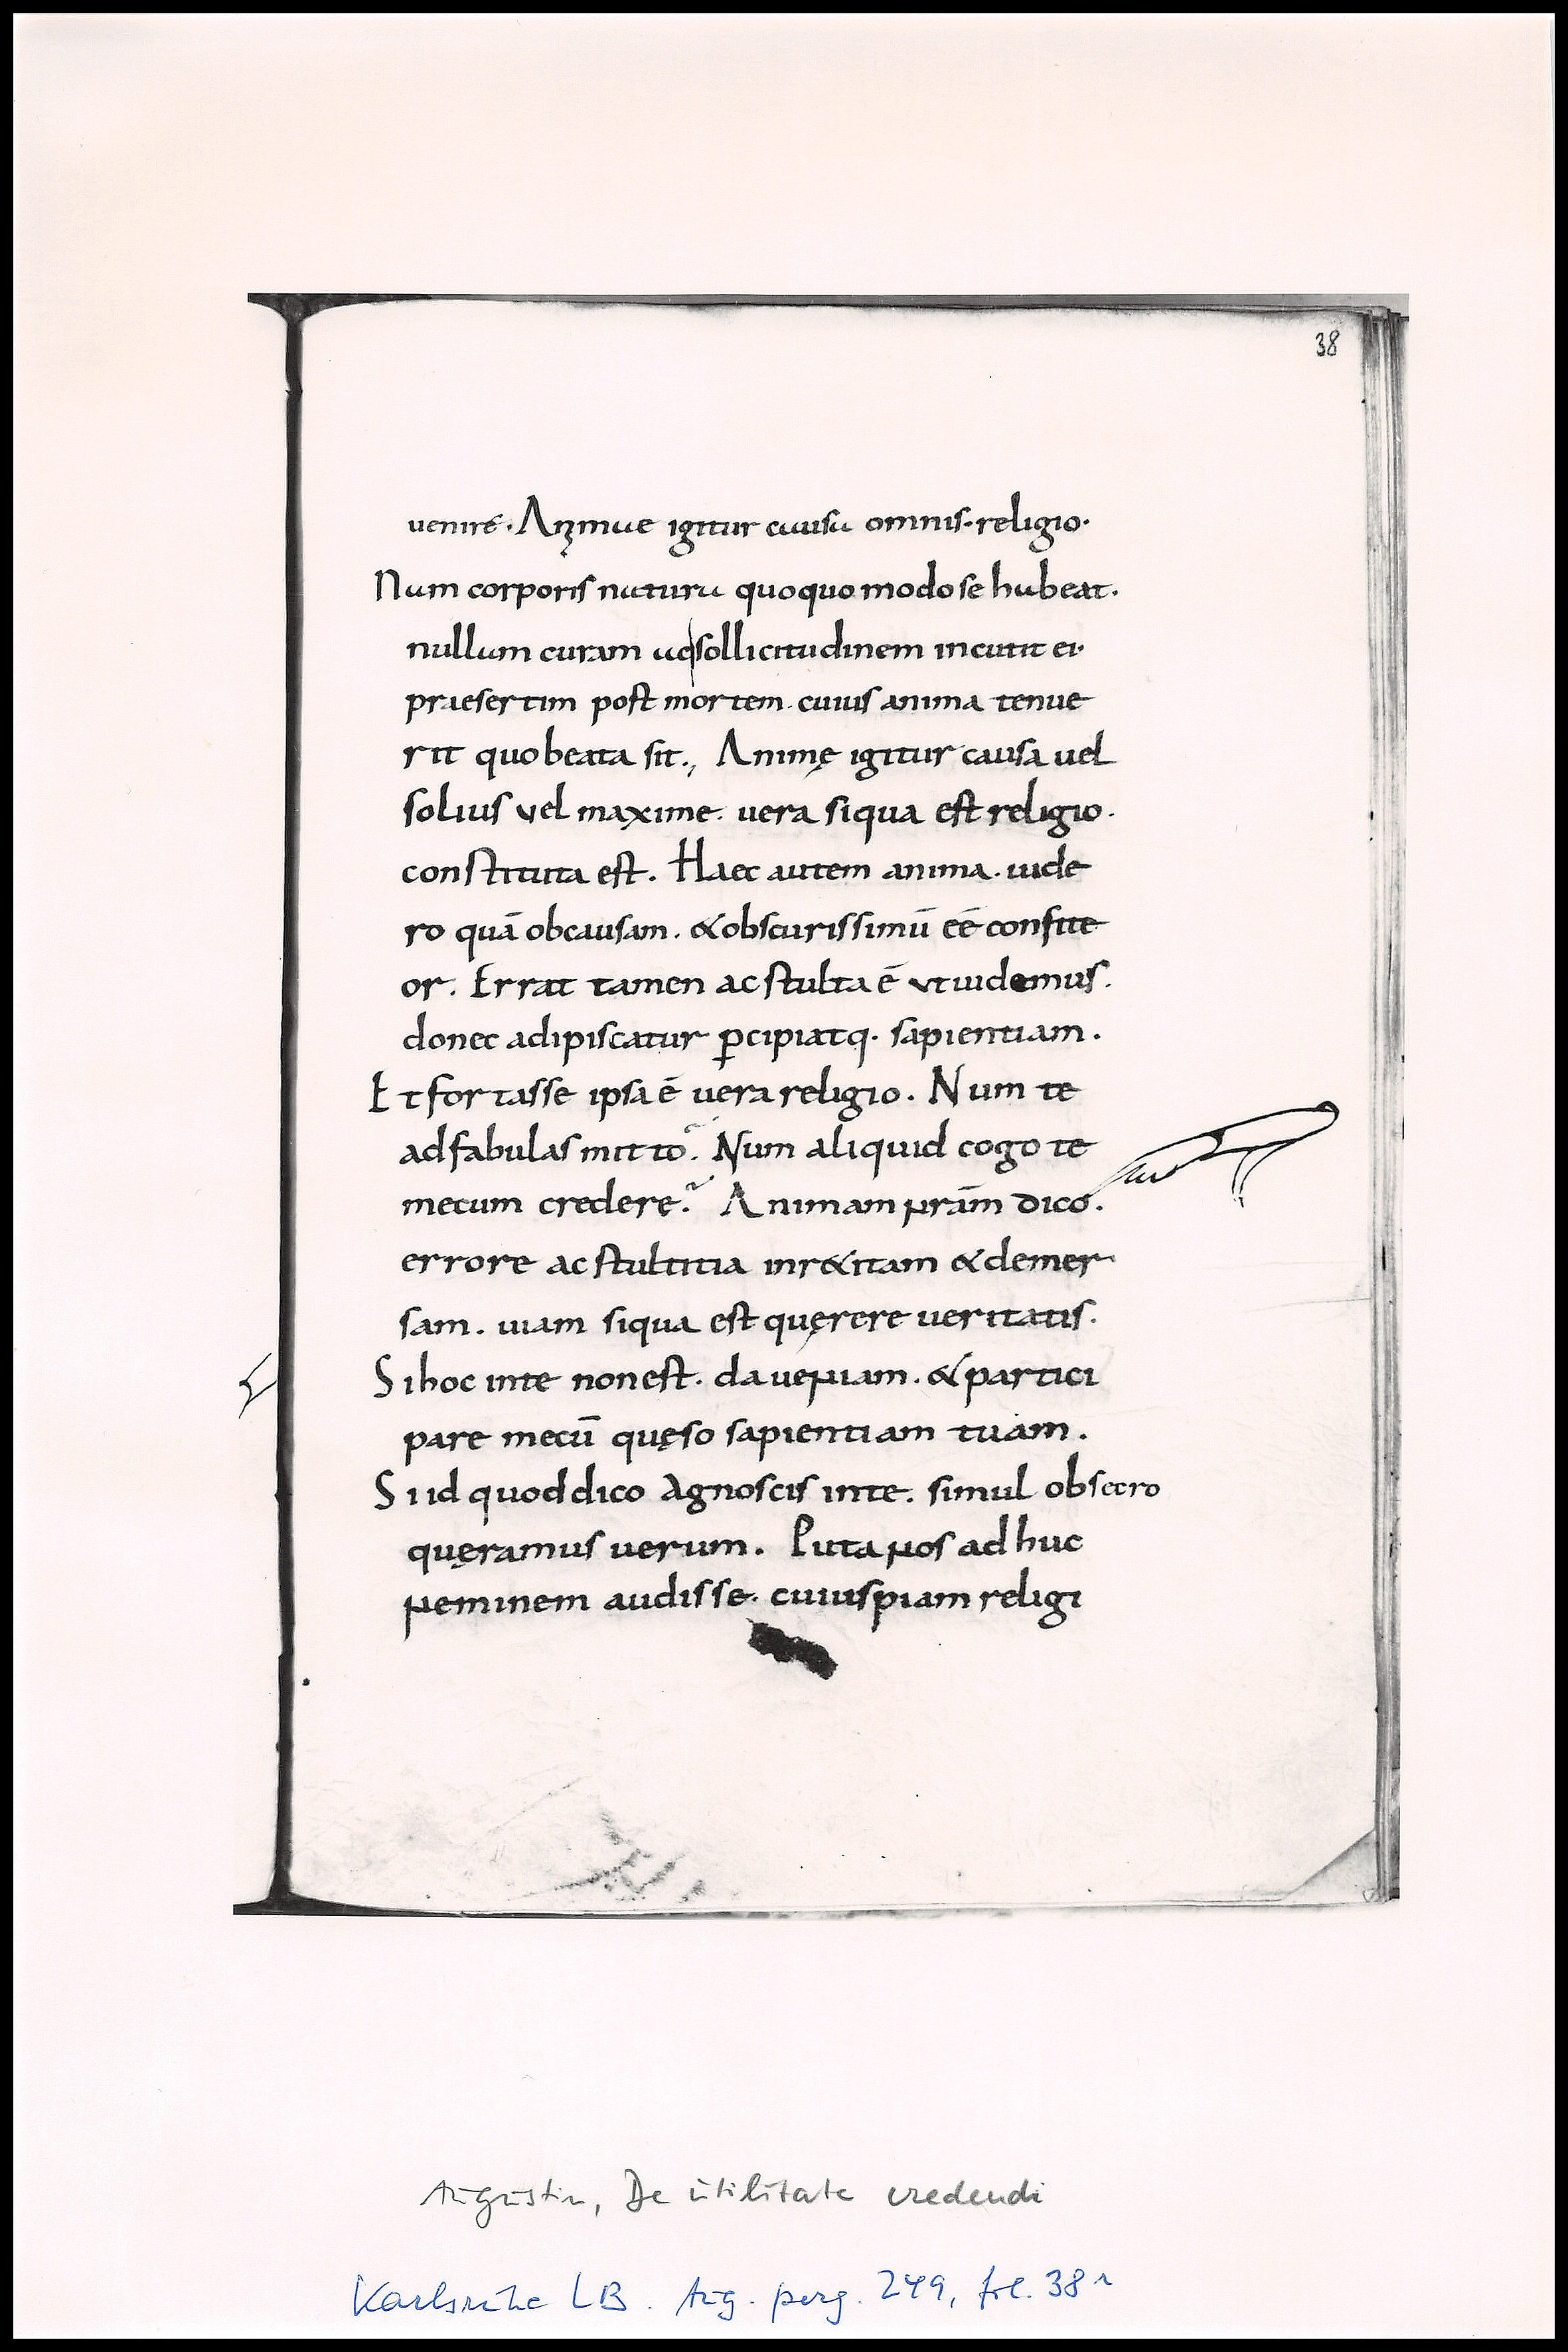 38
uenire. Animae igitur causa omnis. religio.
Nam corporis natura quoquo modo se habeat.
nullam curam ac sollicitudinem incutit ei.
praesertim post mortem. cuius anima tenue
rit quo beata sit., Animę igitur causa uel
solius vel maxime. uera siqua est religio.
constituta est. Haec autem anima. uide
ro quā ob causam. & obscurissimū eē confite
or. Errat tamen ac stulta ē vt uidemus.
donec adipiscatur ꝑcipiatq. sapientiam.
Et fortasse ipsa ē uera religio. Num te
ad fabulas mitto? Num aliquid cogo te
mecum credere? Animam nrām dico.
errore ac stultitia inr&itam & demer
sam. uiam siqua est quęrere ueritatis.
Si hoc in te non est. da ueniam. & partici
pare mecū quęso sapientiam tuam.
Si id quod dico agnoscis in te. simul obsecro
quęramus uerum. Puta nos adhuc
neminem audisse. cuiuspiam religi
Augustin, De utilitate credendi
Karlsruhe LB. Aug. perg. 249, fol. 38r